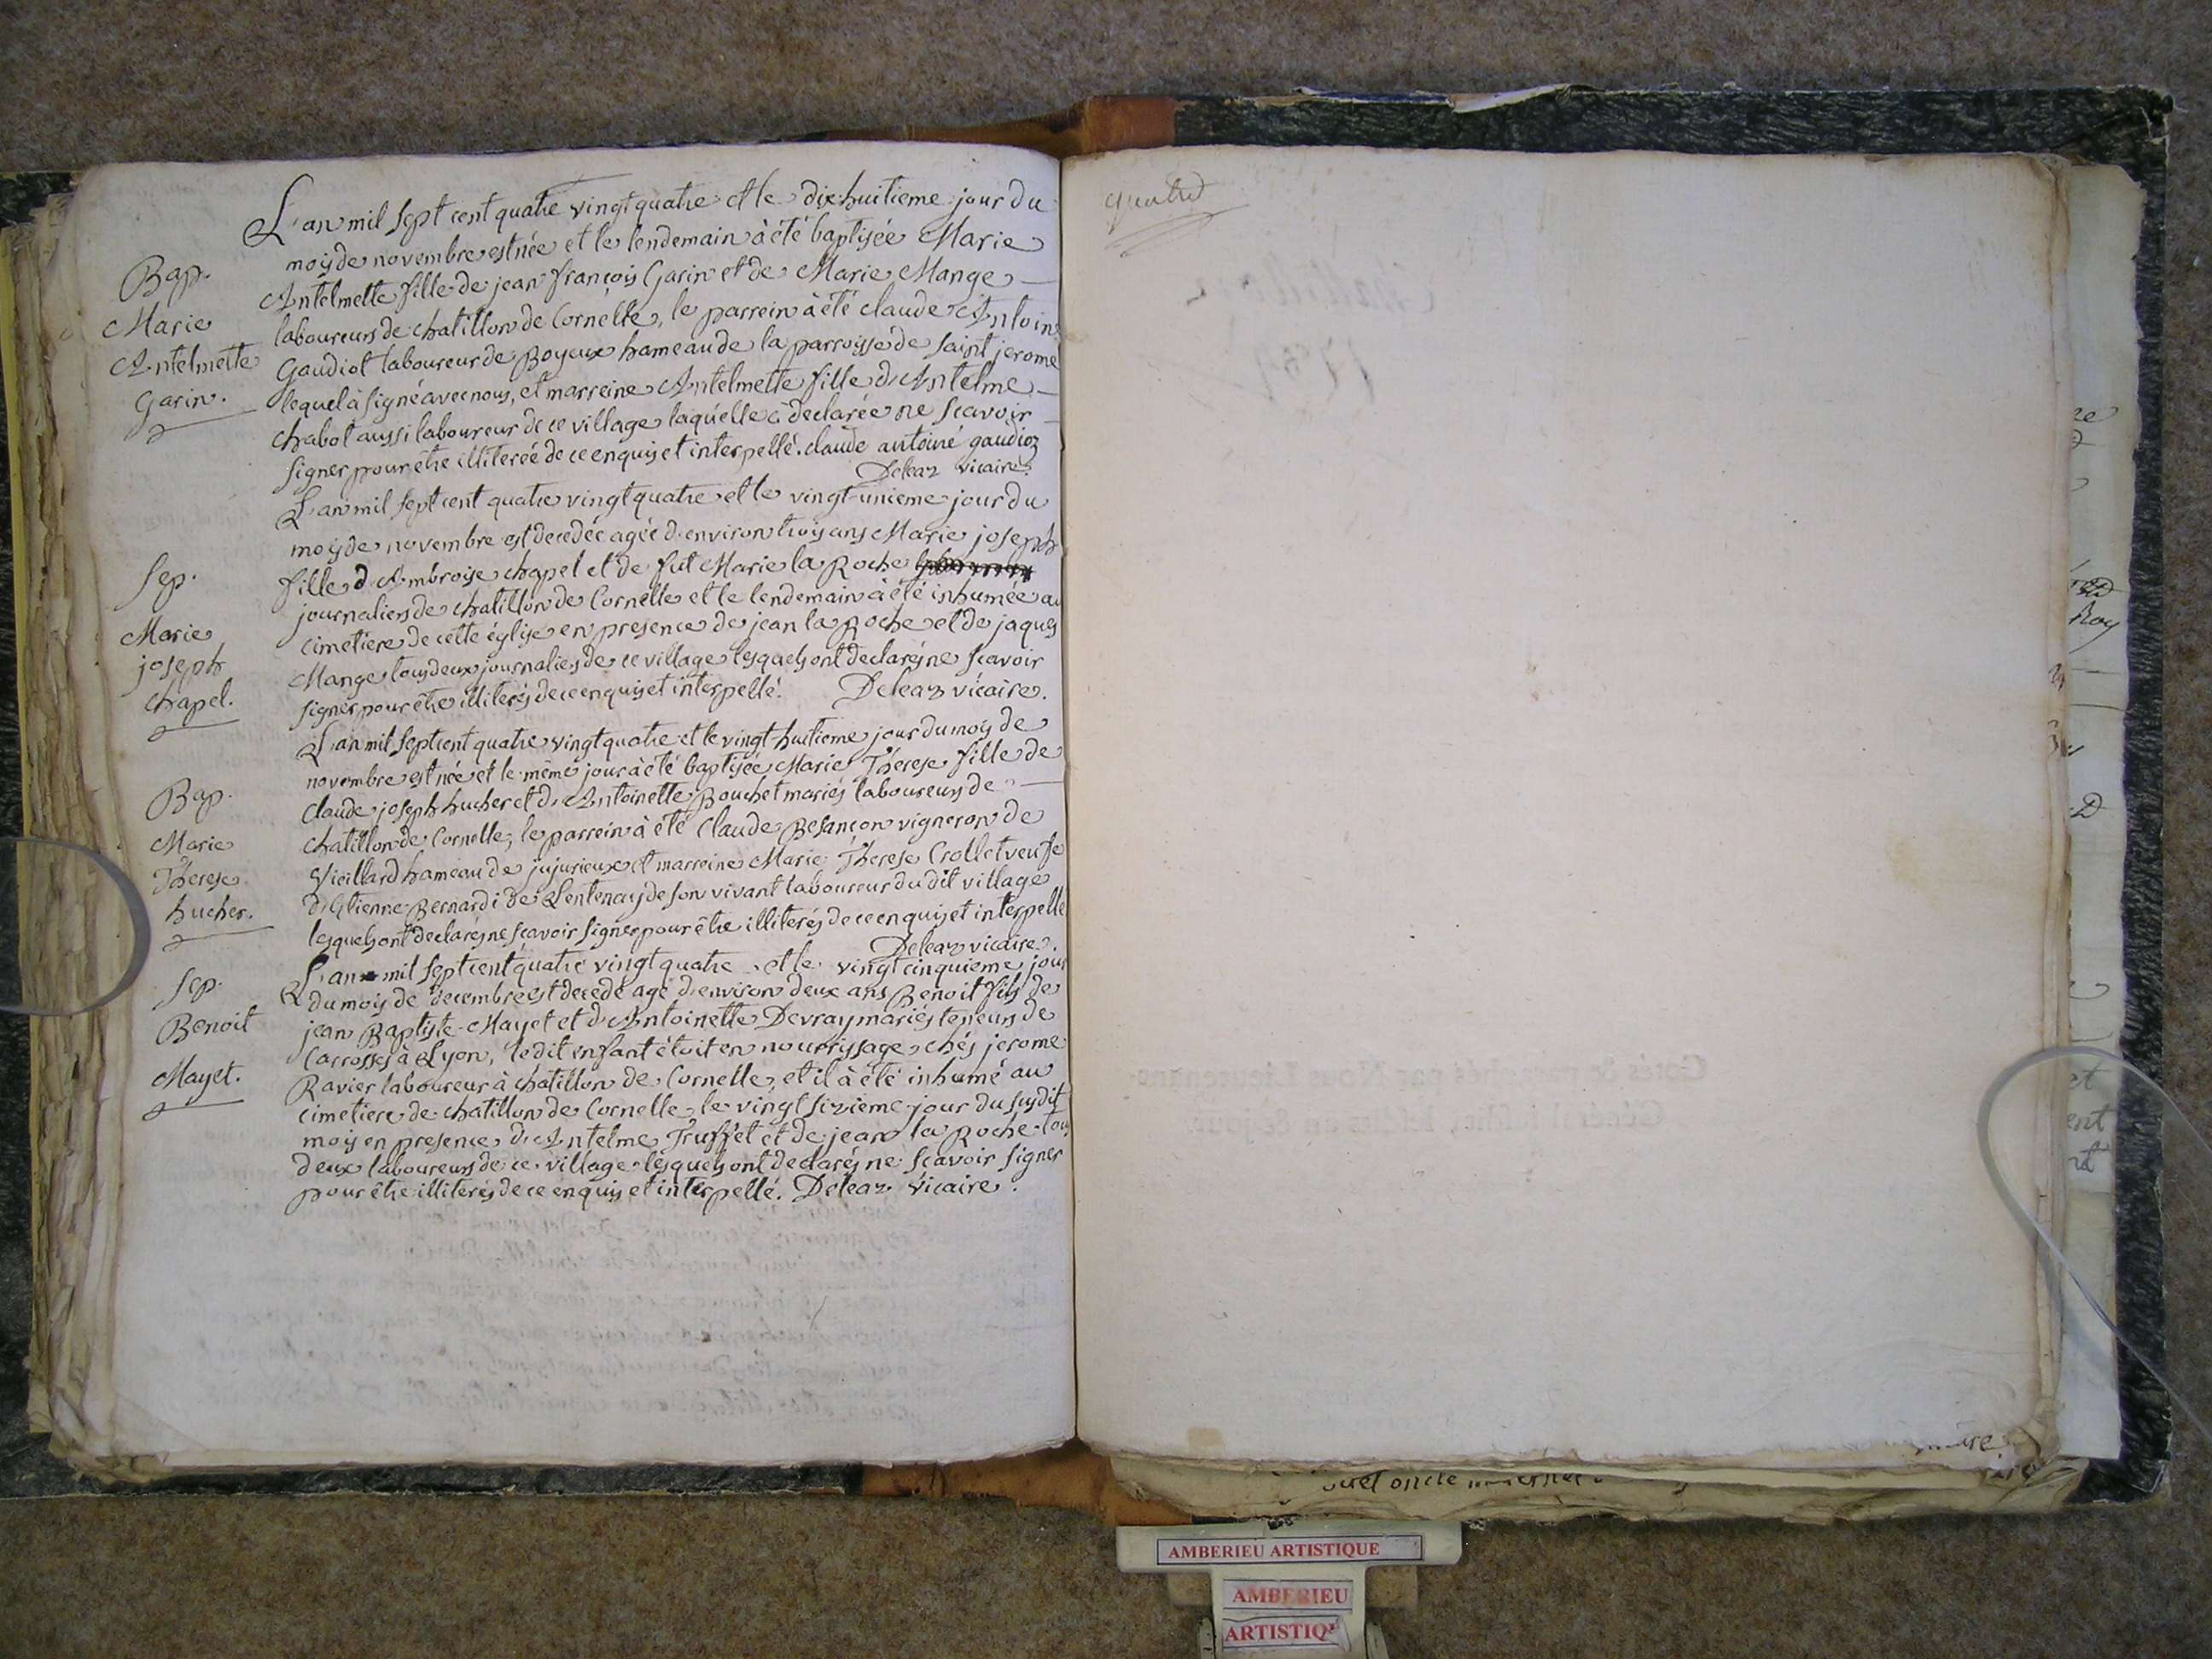 L'an mil sept cent quatre vingt quatre et le dix huitieme jour du
mois de novembre est née et le lendemain à été baptisée Marie
Bap.
Antelmette fille de jean françois Garin et de Marie Mange
Marie
laboureurs de chatillon de Cornelle, le parrein à été claude Antoin
Antelmette
Gaudiot laboureur de Boyeux hameau de la parroisse de saint jerome
Garin.
lequel à signé avec nous, et marreine Antelmette fille d'Antelme
chabot aussi laboureur de ce village laquelle à declarée ne scavoir
signer pour être illiterée de ce enquis et interpellé. claude antoine gaudioz
Deleaz vicaire.
L'an mil sept cent quatre vingt quatre et le vingt-unieme jour du
mois de novembre est decedée agée d'environ trois ans Marie joseph
Sep.
fille d'Ambroise chapel et de fut Marie la Roche
journaliers de chatillon de Cornelle et le lendemain à été inhumée au
Marie
cimetiere de cette église en presence de jean la Roche et de jaques
joseph
Mange tous deux journaliers de ce village lesquels ont declarés ne scavoir
chapel.
signer pour être illiterés de ce enquis et interpellé. Deleaz vicaire.
L'an mil sept cent quatre vingt quatre et le vingt-huitieme jour du mois de
novembre est née et le même jour à été baptisée Marie Therese fille de
Bap.
Claude joseph hucher et d'Antoinette Bouchet mariés laboureurs de
Marie
chatillon de Cornelle, le parrein à été Claude Besançon vigneron de
Therese
Vieillard hameau de jujurieux et marreine Marie Therese Crollet veufe
hucher.
d'Etienne Bernardi de Lentenay de son vivant laboureur du dit village
lesquels ont declarés ne scavoir signer pour être illiterés de ce enquis et interpellé
Deleaz vicaire.
Sep.
L'an mil sept cent quatre vingt quatre et le vingt cinquieme jour
du mois de decembre est decedé agé d'environ deux ans Benoit fils de
Benoit
jean Baptiste Mayet et d'Antoinette Devray mariés teneurs de
Carrosses à Lyon, ledit enfant étoit en nourrissage chés jerome
Mayet.
Ravier laboureur à chatillon de Cornelle, et il à été inhumé au
cimetiere de chatillon de Cornelle le vingt sizieme jour du susdit
mois en presence d'Antelme Truffet et de jean la Roche tous
deux laboureurs de ce village lesquels ont declarés ne scavoir signer
pour être illiterés de ce enquis et interpellé. Deleaz Vicaire.
quatre
AMBERIEU ARTISTIQUE
AMBERIEU
ARTISTIQ